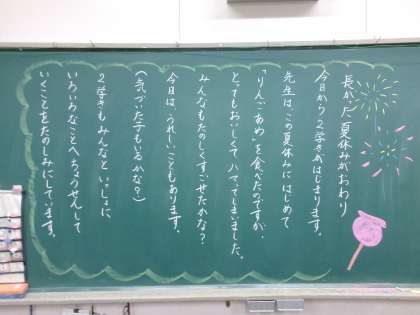 長かった夏休みがおわり
今日から2学きがはじまります。
先生はこの夏休みにはじめて
「りんごあめ」を食べたんですが、
とってもおいしくて、ハマってしまいました。
みんなもたのしくすごせたかな?
今日は、うれしいこともあります。
(気づいた子もいるかな?)
2学きもみんなといっしょに
いろいろなことへちょうせんして
いくことをたのしみにしています。